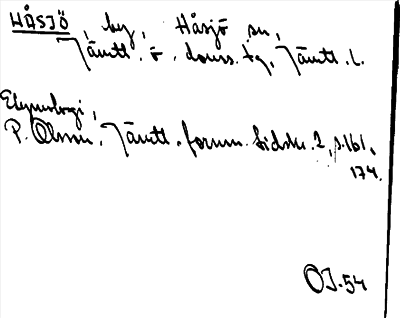 HÅSJÖ, by, Håsjö sn,
Jämtl. ö. doms. tg, Jämtl. l.
Etymologi,
P. Olsson, Jämtl. fornm. tidskr. 2, s. 161,
174.
OJ-54